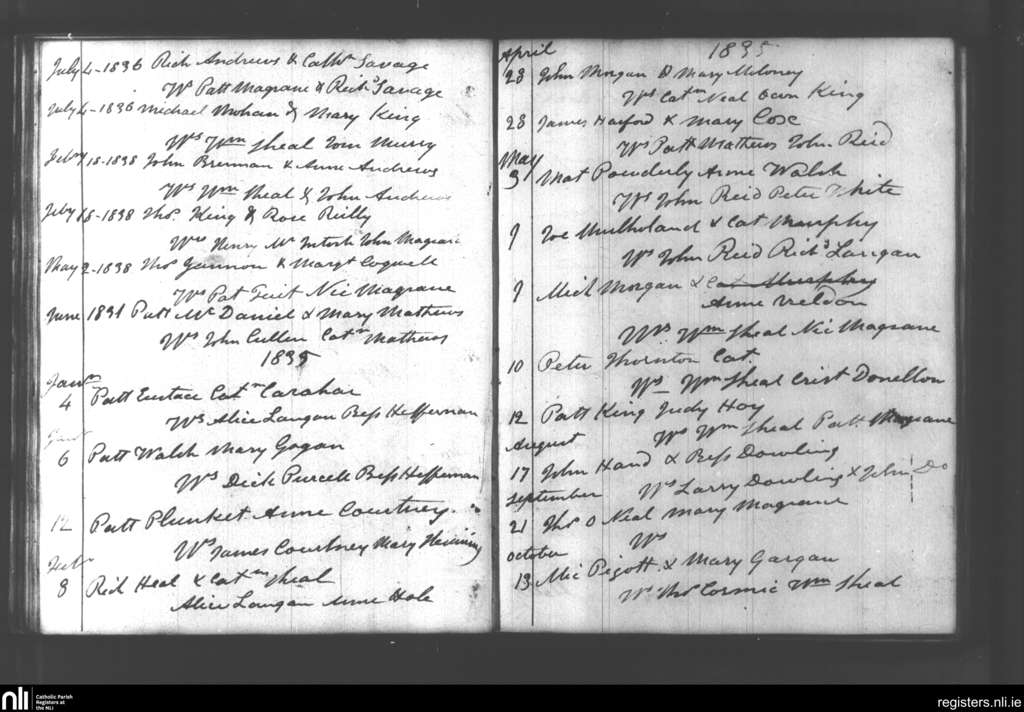 July 4-1836 Rich Andrews & Cathn Savage
Ws Patt Magrane & Richd Savage
July 4-1836 Michael Mohan & Mary King
Ws Wm Sheal Tom Murry
Feby 18-1838 John Brennan & Anne Andrews
Ws Wm Sheal & John Andrews
Feby 18-1838 Thos King & Rose Reilly
Wss Henry Mc Intosh John Magrane
May 2-1838 Thos Gannon & Margt
Ws Pat Nic Magrane
June 1831 Patt Mc Daniel & Mary Mathews
Ws John Cullen Catn Mathews
1835
Janu
4 Patt Eustace Catn Carahar
Ws Alice Langan Bess Heffernan
6 Patt Walsh Mary Gogan
Ws Dick Purcell Bess Heffernan
12 Patt Plunket Anne Courtney
Ws James Courtney Mary
Feb
8 Rid Heal & Catn Sheal
Alice Langan Anne Hole
April 1835
23 John Morgan & Mary Meloney
Ws Catn Neal Owen King
28 James Harford & Mary Cose
Ws Patt Mathews John Reid
May
3 Mat Powderly Anne Walsh
Ws John Reid Peter White
9 Joe Mulholand & Cat Murphy
Ws John Reid Richd Langan
9 Mich Morgan & Cat Murphy
Anne Weldon
Wss Wm Sheal Nic Magrane
10 Peter Thornton Cat
Ws Wm Sheal Crist Donellon
12 Patt King Judy Hoy
August Ws Wm Sheal Patt Magrane
17 John Hand & Bess Dowling
September Ws Larry Dowling & John Do
21 Thos O Neal Mary Magrane
October Ws
13 Mic Pigott & Mary Gargan
Ws Thos Cormic Wm Sheal
nli
Catholic Parish
Registers at
the NLI
registers.nli.ie